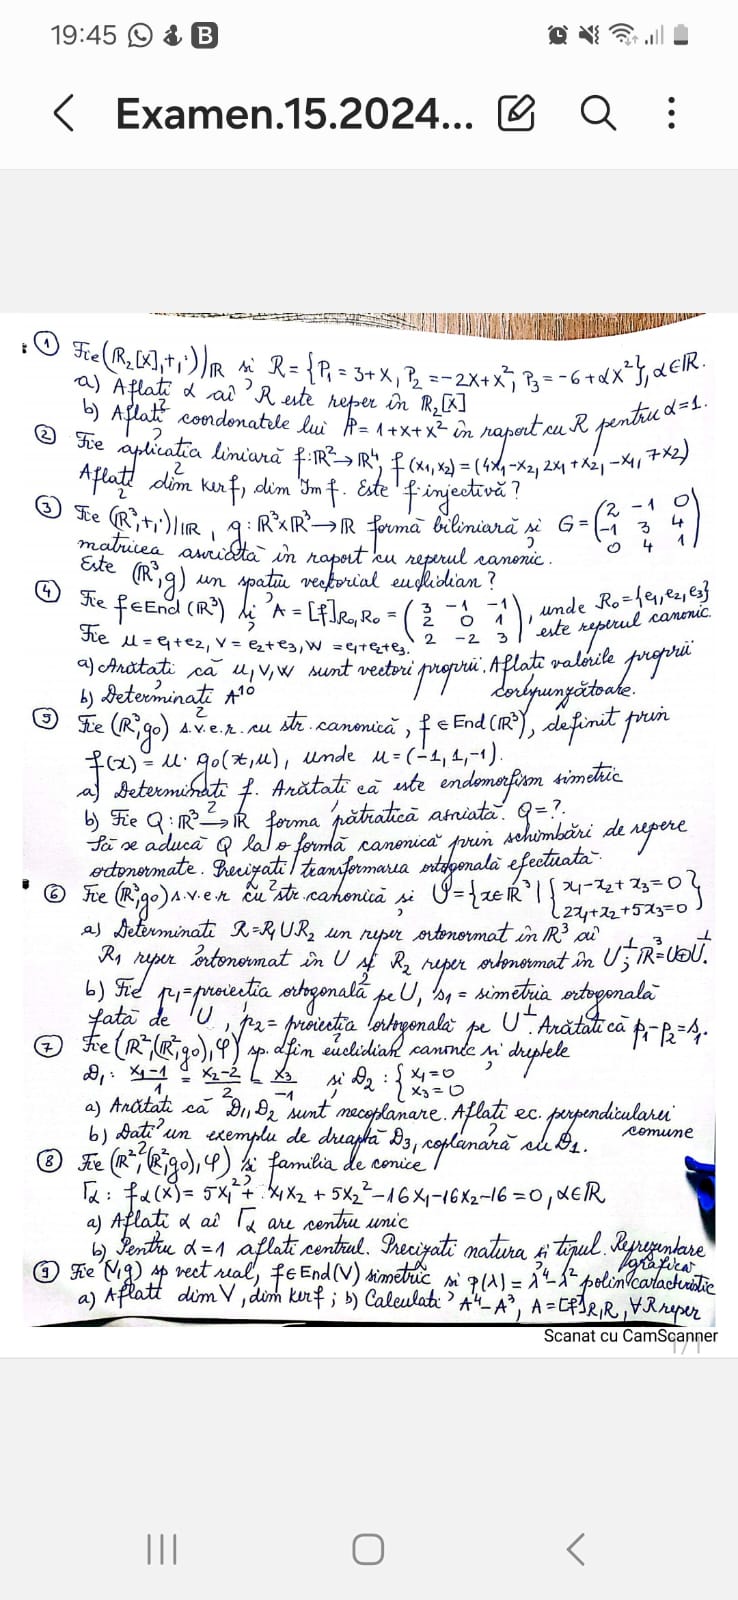 19:45
Examen.15.2024...
① Fie (R₂[X],+,·)/ℝ și R = {P₁ = 3+X, P₂ = -2X+X², P₃ = -6+αX²}, α∈ℝ.
a) Aflați α aî R este reper în ℝ₂[X]
b) Aflați coordonatele lui P = 1+X+X² în raport cu R pentru α=1.
② Fie aplicația liniară f:ℝ²→ℝ⁴, f(x₁,x₂) = (4x₁-x₂, 2x₁+x₂, -x₁, 7x₂)
Aflați dim Ker f, dim Im f. Este f injectivă?
③ Fie (ℝ³,+,·)|ℝ, g: ℝ³×ℝ³→ℝ formă biliniară și G = (2 -1 0; -1 3 4; 0 4 1)
matricea asociată în raport cu reperul canonic.
Este (ℝ³,g) un spațiu vectorial euclidian?
④ Fie f∈End(ℝ³) și A = [f]R₀,R₀ = (3 -1 -1; 2 0 1; 2 -2 3), unde R₀={e₁,e₂,e₃}
este reperul canonic.
Fie u = e₁+e₂, v = e₂+e₃, w = e₁+e₂+e₃.
a) Arătați că u,v,w sunt vectori proprii. Aflați valorile proprii
corespunzătoare.
b) Determinați A¹⁰
⑤ Fie (ℝ³,g₀) s.v.e.r. cu str. canonică, f∈End(ℝ³), definit prin
f(x) = u·g₀(x,u), unde u=(-1,1,-1).
a) Determinați f. Arătați că este endomorfism simetric
b) Fie Q:ℝ³→ℝ forma pătratică asociată. Q=?.
Să se aducă Q la o formă canonică prin schimbări de repere
ortonormate. Precizați transformarea ortogonală efectuată.
⑥ Fie (ℝ³,g₀) s.v.e.r cu str. canonică și U={x∈ℝ³ | { x₁-x₂+x₃=0
2x₁+x₂+5x₃=0 }
a) Determinați R=R₁∪R₂ un reper ortonormat în ℝ³ aî
R₁ reper ortonormat în U și R₂ reper ortonormat în U⊥; ℝ³=U⊕U⊥.
b) Fie p₁=proiecția ortogonală pe U, s₁ = simetria ortogonală
față de U, p₂ = proiecția ortogonală pe U⊥. Arătați că p₁-p₂=s₁.
⑦ Fie (ℝ³,(ℝ³,g₀),φ) sp. afin euclidian canonic și dreptele
D₁: (x₁-1)/1 = (x₂-2)/2 = x₃/-1 și D₂: { x₁=0
x₃=0
a) Arătați că D₁,D₂ sunt necoplanare. Aflați ec. perpendicularei
comune
b) Dați un exemplu de dreaptă D₃, coplanară cu D₁.
⑧ Fie (ℝ²,(ℝ²,g₀),φ) și familia de conice
Γα: fα(x) = 5x₁²+ x₁x₂ + 5x₂²-16x₁-16x₂-16=0, α∈ℝ
a) Aflați α aî Γα are centru unic
b) Pentru α=1 aflați centrul. Precizați natura și tipul. Reprezentare
grafică
⑨ Fie (V,g) sp vect real, f∈End(V) simetric și P(λ) = λ⁴-λ² polin caracteristic
a) Aflați dim V, dim Ker f; b) Calculați A⁴-A³, A=[f]R,R, ∀R reper
Scanat cu CamScanner
1/1